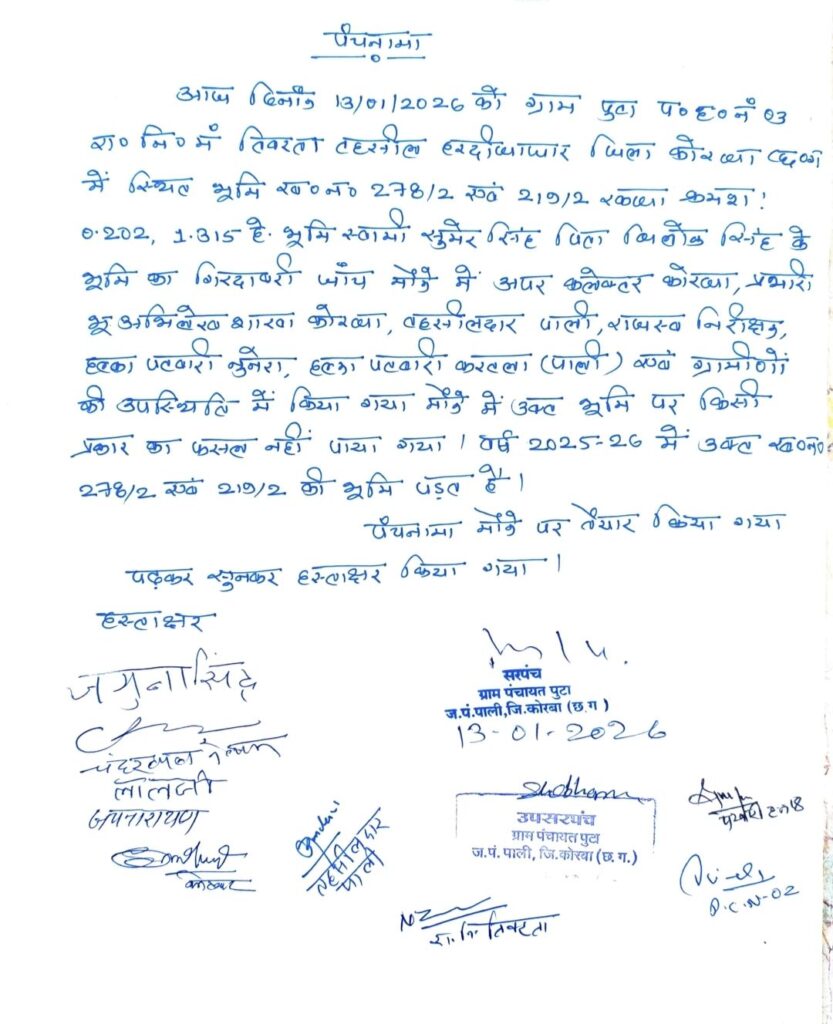 पंचनामा
आज दिनाँक 13/01/2026 को ग्राम पुटा प०ह०नं 03
रा० नि० मं तिवरता तहसील हरदीबाजार जिला कोरबा छ०ग०
में स्थित भूमि ख०न० 278/2 एवं 219/2 रकबा क्रमश:
0.202, 1.315 हे. भूमि स्वामी सुमेर सिंह पिता सिंह के
भूमि का गिरदावरी जाँच मौके में अपर कलेक्टर कोरबा, प्रभारी
भू अभिलेख शाखा कोरबा, तहसीलदार पाली, राजस्व निरीक्षक,
हल्का पटवारी नुनेरा, हल्का पटवारी करतला (पाली) एवं ग्रामीणों
की उपस्थिति में किया गया मौके में उक्त भूमि पर किसी
प्रकार का फसल नहीं पाया गया । वर्ष 2025-26 में उक्त ख०न०
278/2 एवं 219/2 की भूमि पड़त है ।
पंचनामा मौके पर तैयार किया गया
पढ़कर सुनकर हस्ताक्षर किया गया ।
हस्ताक्षर
जमुनासिंह
लालजी
जयनारायण
सरपंच
ग्राम पंचायत पुटा
ज.पं.पाली,जि.कोरबा (छ.ग.)
13-01-2026
Shobharam
उपसरपंच
ग्राम पंचायत पुटा
ज.पं. पाली, जि.कोरबा (छ.ग.)
तहसीलदार
पाली
P.C.N-02
रा.नि. तिवरता